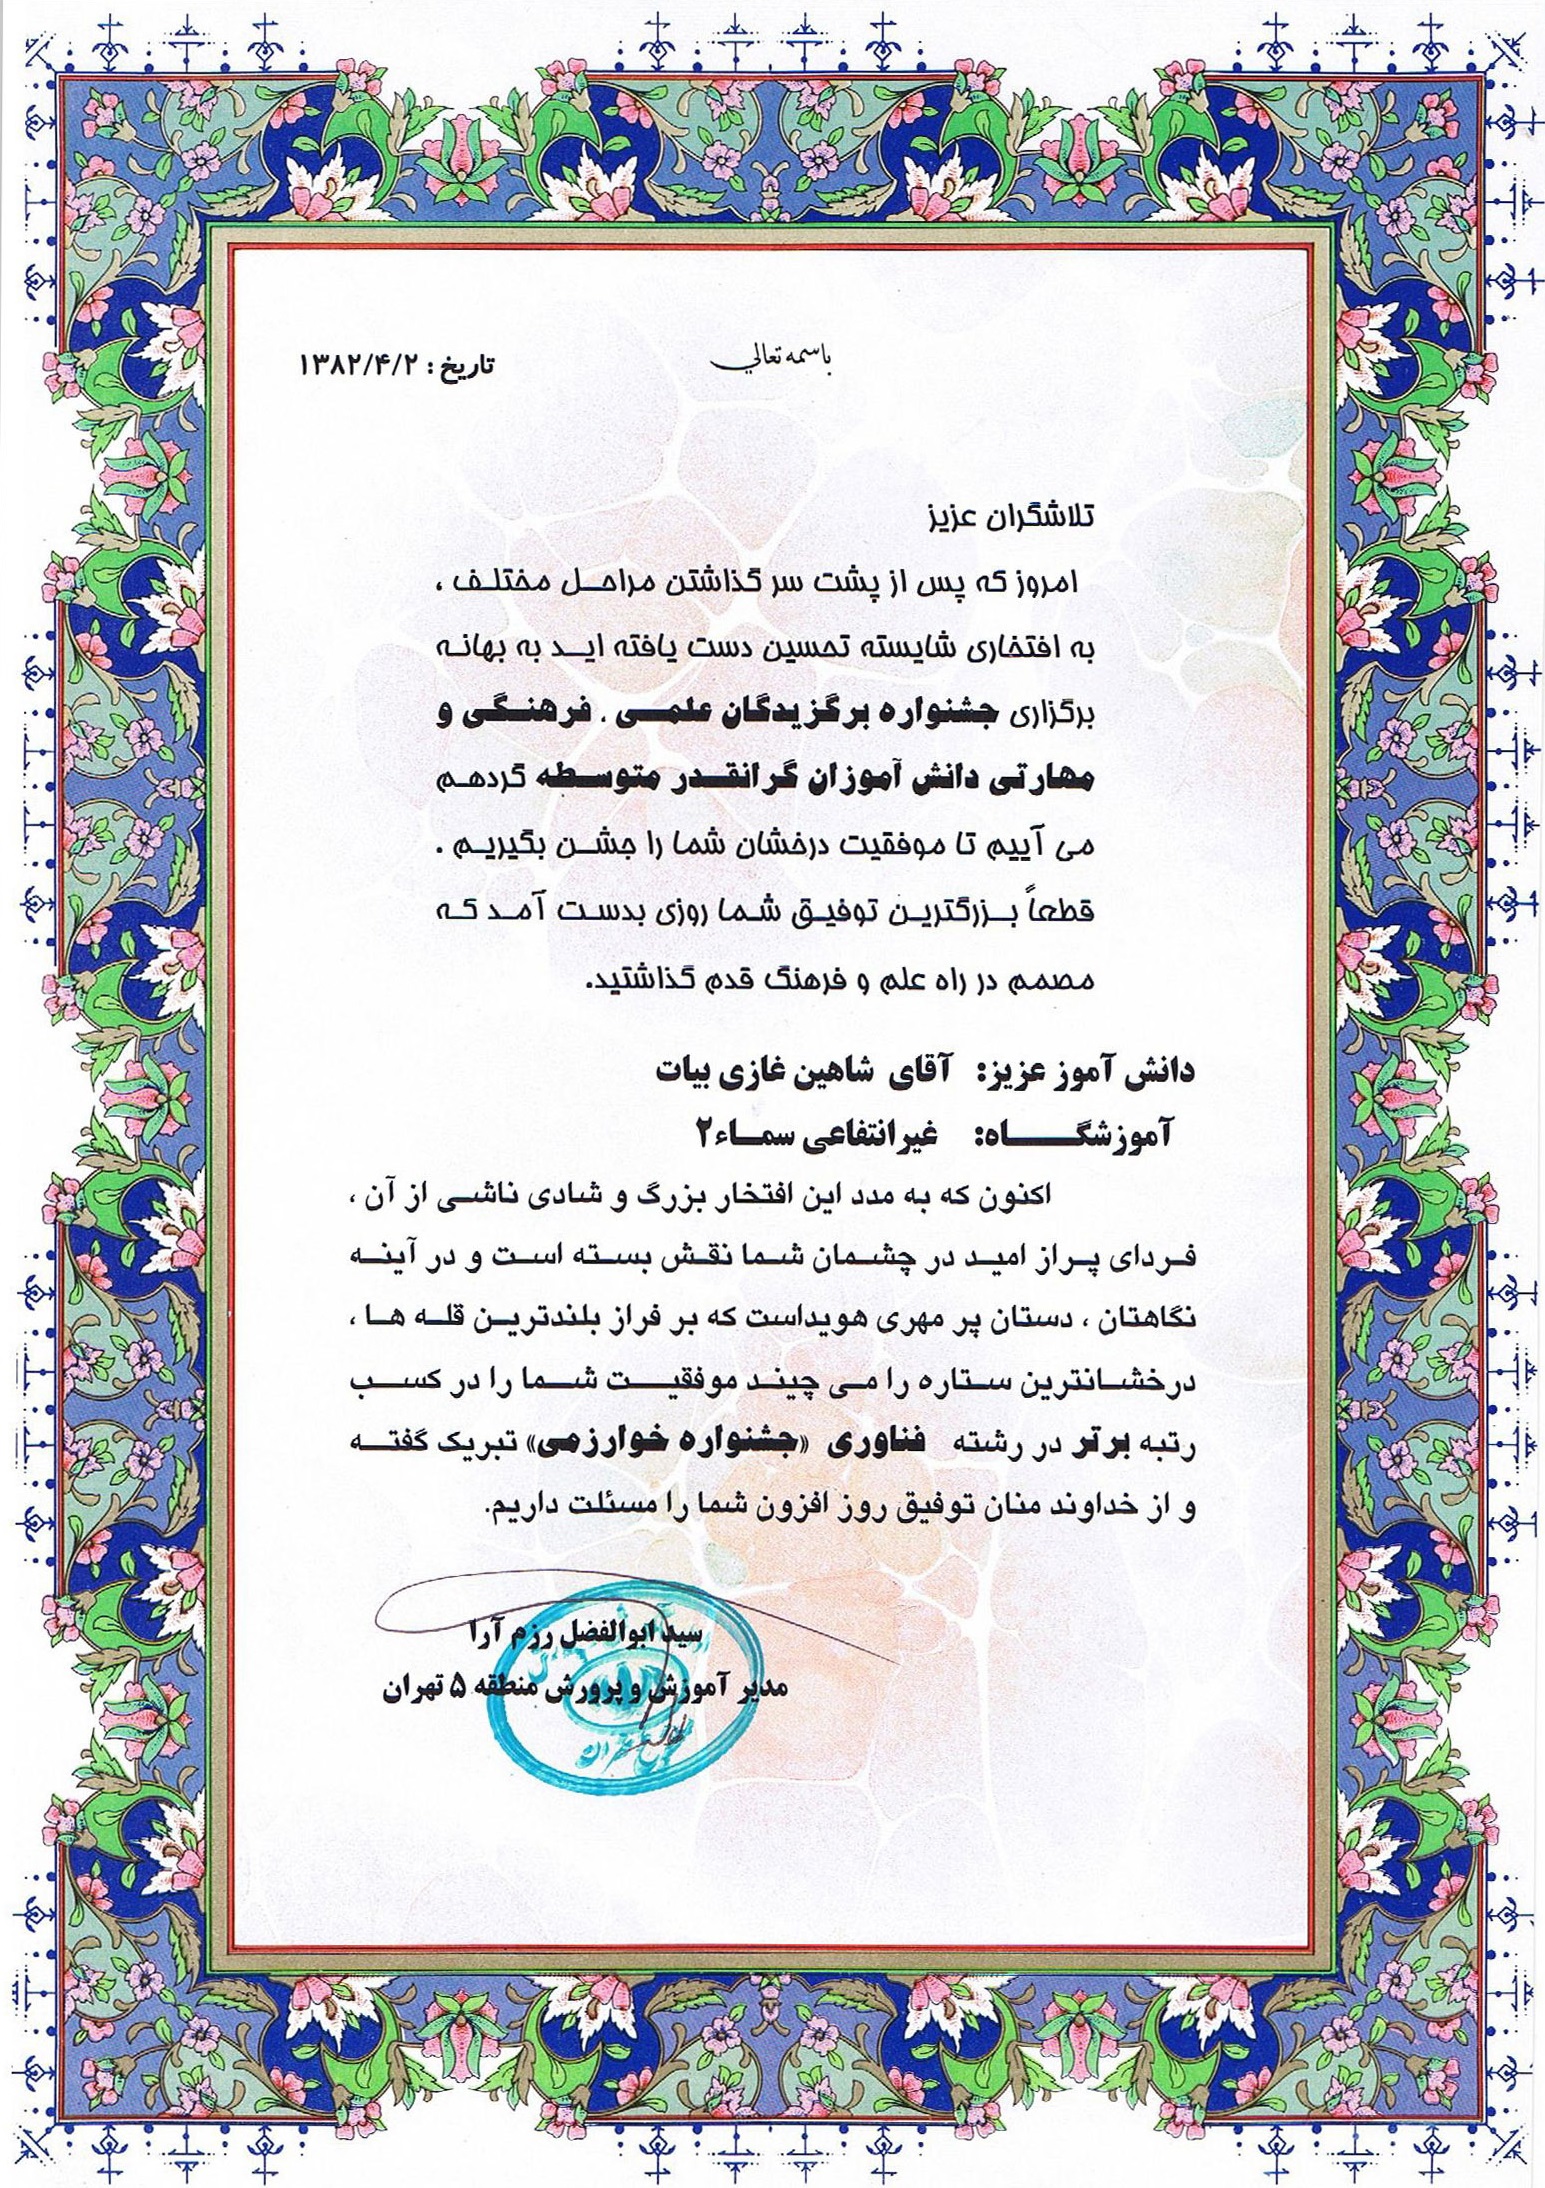 باسمه تعالي
تاریخ : ۱۳۸۲/۴/۲
تلاشگران عزیز
امروز که پس از پشت سر گذاشتن مراحل مختلف ،
به افتخاری شایسته تحسین دست یافته اید به بهانه
برگزاری جشنواره برگزیدگان علمی ، فرهنگی و
مهارتی دانش آموزان گرانقدر متوسطه گردهم
می آییم تا موفقیت درخشان شما را جشن بگیریم .
قطعاً بزرگترین توفیق شما روزی بدست آمد که
مصمم در راه علم و فرهنگ قدم گذاشتید.
دانش آموز عزیز: آقای شاهین غازی بیات
آموزشگاه: غیرانتفاعی سماء۲
اکنون که به مدد این افتخار بزرگ و شادی ناشی از آن ،
فردای پراز امید در چشمان شما نقش بسته است و در آینه
نگاهتان ، دستان پر مهری هویداست که بر فراز بلندترین قله ها ،
درخشانترین ستاره را می چیند موفقیت شما را در کسب
رتبه برتر در رشته فناوری «جشنواره خوارزمی» تبریک گفته
و از خداوند منان توفیق روز افزون شما را مسئلت داریم.
سید ابوالفضل رزم آرا
مدیر آموزش و پرورش منطقه ۵ تهران